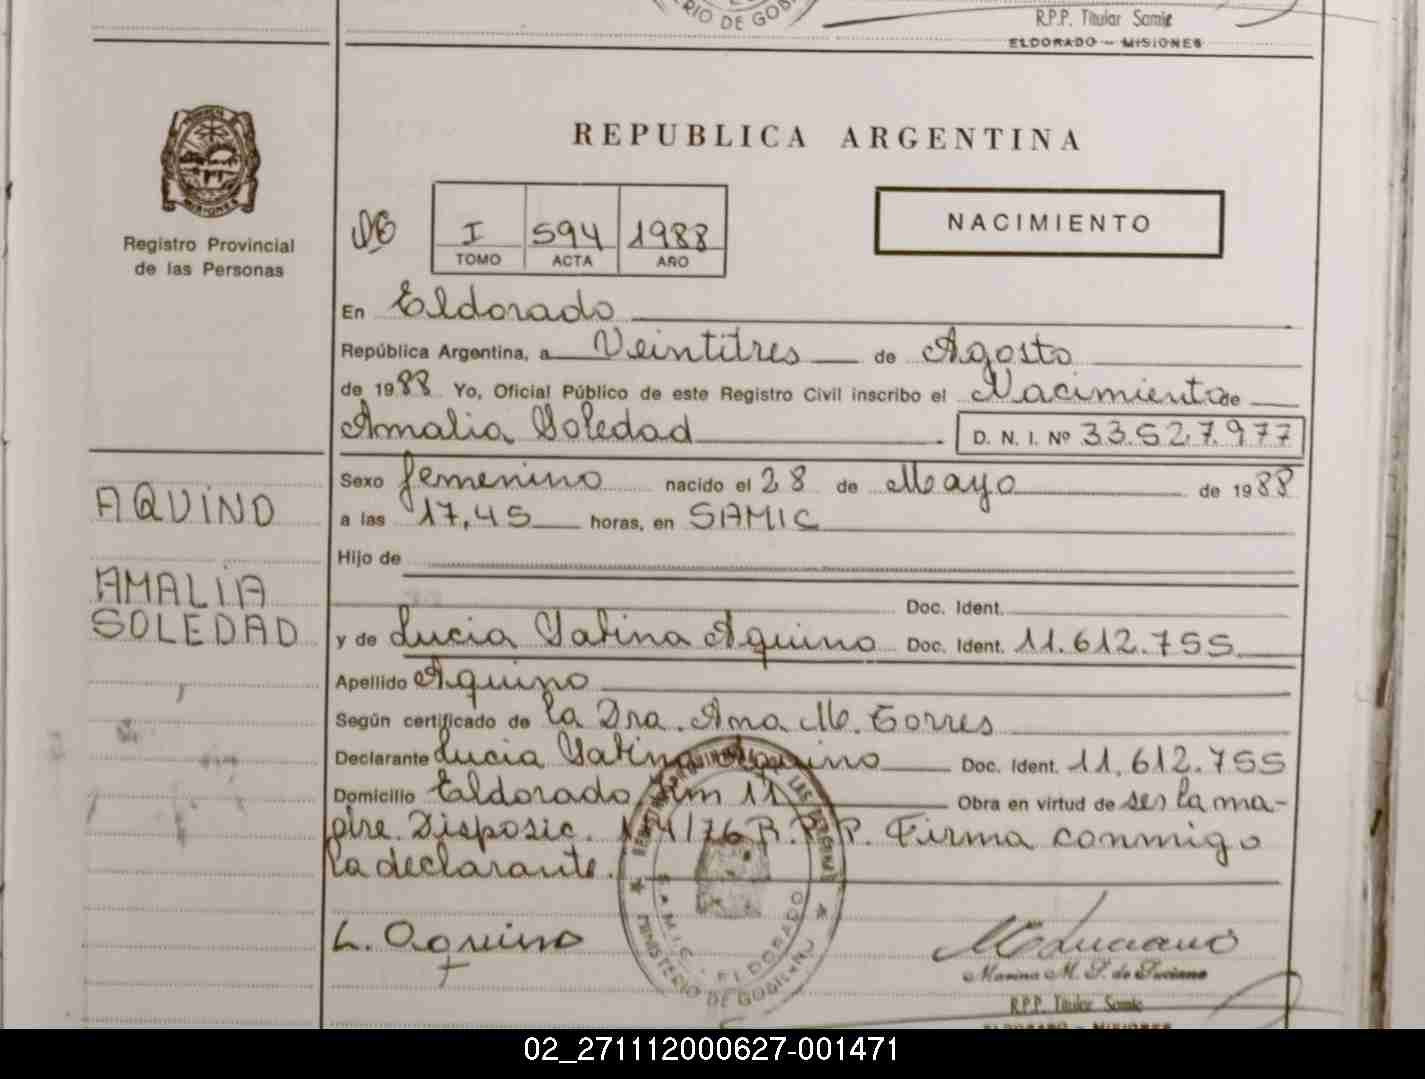 RIO DE GOB
R.P.P. Titular Samic
ELDORADO - MISIONES
PROVINCIA DE
MISIONES
Registro Provincial
de las Personas
REPUBLICA ARGENTINA
I 594 1988
TOMO ACTA AÑO
NACIMIENTO
En Eldorado
República Argentina, a Veintitres de Agosto
de 1988 Yo, Oficial Público de este Registro Civil inscribo el Nacimiento de
Amalia Soledad D. N. I. Nº 33.527.977
Sexo femenino nacido el 28 de Mayo de 1988
a las 17,45 horas, en SAMIC
Hijo de
Doc. Ident.
y de Lucia Sabina Aquino Doc. Ident. 11.612.755
Apellido Aquino
Según certificado de la Dra. Ana M. Torres
Declarante Lucia Sabina Aquino Doc. Ident. 11.612.755
Domicilio Eldorado km 11 Obra en virtud de ser la ma-
dre. Disposic. 14/76 R.P.P. Firma conmigo
la declarante.
AQUINO
AMALIA
SOLEDAD
L. Aquino
MINISTERIO DE GOBIERNO
SAMIC - ELDORADO
M Luciano
Marina M. P. de Luciano
R.P.P. Titular Samic
ELDORADO - MISIONES
02_271112000627-001471